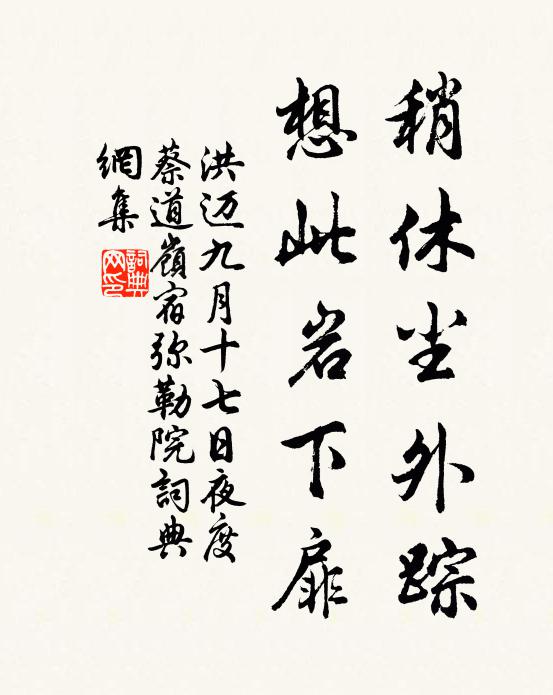 稍休尘外踪
想此岩下扉
洪迈九月十七日夜度
蔡道岭宿弥勒院词典
網集
詞典網印